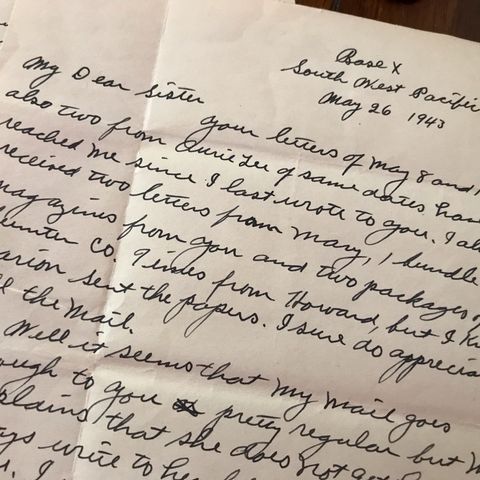 Base X
South West Pacific
May 26 1943
My Dear Sister
your letters of May 8 and 1
also two from of same dates have
reached me since I last wrote to you. I al
received two letters from Mary, 1 bundle
magazines from you and two packages of
unter Co. Times from Howard, but I k
arion sent the papers. I sure do apprecia
ll the mail.
Well it seems that my mail goes
ough to you pretty regular but M
plains that she does not get
ays write to her
I